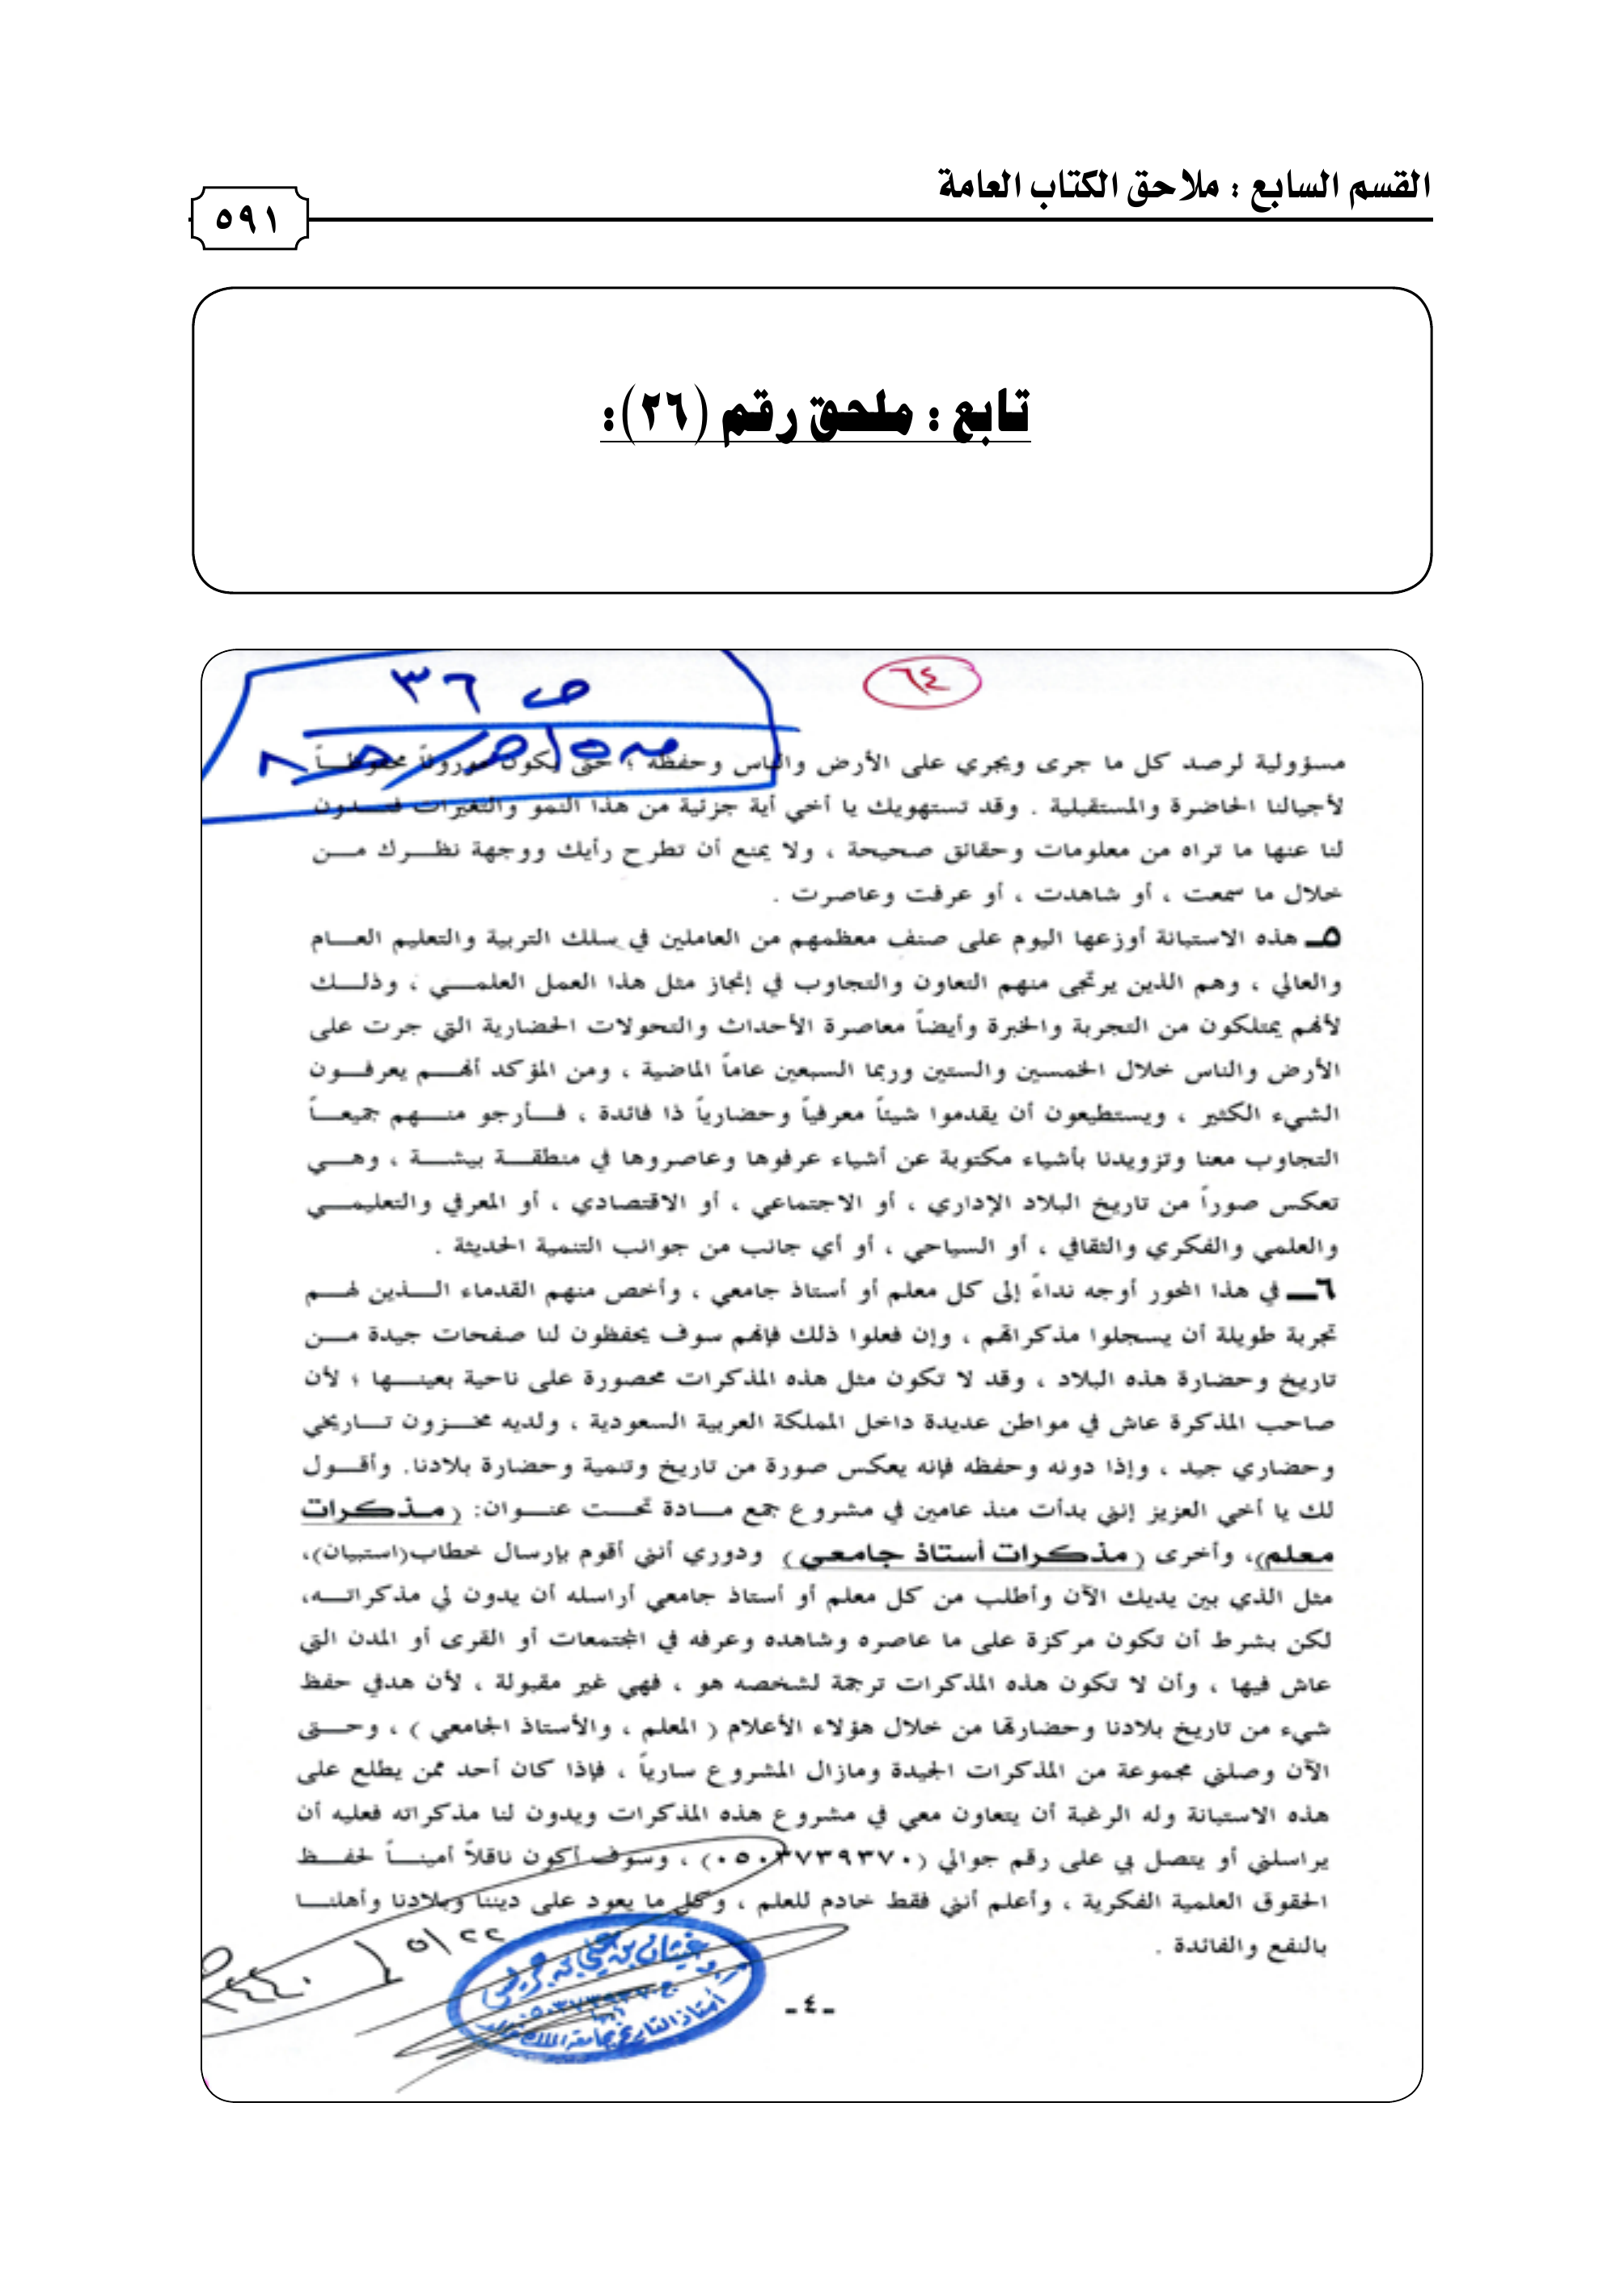 القسم السابع : ملاحق الكتاب العامة
٥٩١
تابع : ملحق رقم (٢٦):
ص ٣٦
٦٤
مسؤولية لرصد كل ما جرى ويجري على الأرض والناس وحفظه ؛ حتى يكون موروثاً محفوظـــاً
لأجيالنا الحاضرة والمستقبلية . وقد تستهويك يا أخي أية جزئية من هذا النمو والتغيرات فتـــدون
لنا عنها ما تراه من معلومات وحقائق صحيحة ، ولا يمنع أن تطرح رأيك ووجهة نظـــرك مـــن
خلال ما سمعت ، أو شاهدت ، أو عرفت وعاصرت .
٥ـ هذه الاستبانة أوزعها اليوم على صنف معظمهم من العاملين في سلك التربية والتعليم العـــام
والعالي ، وهم الذين يرتجى منهم التعاون والتجاوب في إنجاز مثل هذا العمل العلمـــي ، وذلـــك
لأنهم يمتلكون من التجربة والخبرة وأيضاً معاصرة الأحداث والتحولات الحضارية التي جرت على
الأرض والناس خلال الخمسين والستين وربما السبعين عاماً الماضية ، ومن المؤكد أنهـــم يعرفـــون
الشيء الكثير ، ويستطيعون أن يقدموا شيئاً معرفياً وحضارياً ذا فائدة ، فـــأرجو منـــهم جميعـــاً
التجاوب معنا وتزويدنا بأشياء مكتوبة عن أشياء عرفوها وعاصروها في منطقـــة بيشـــة ، وهـــي
تعكس صوراً من تاريخ البلاد الإداري ، أو الاجتماعي ، أو الاقتصادي ، أو المعرفي والتعليمـــي
والعلمي والفكري والثقافي ، أو السياحي ، أو أي جانب من جوانب التنمية الحديثة .
٦ـ في هذا المحور أوجه نداءً إلى كل معلم أو أستاذ جامعي ، وأخص منهم القدماء الـــذين لهـــم
تجربة طويلة أن يسجلوا مذكراتهم ، وإن فعلوا ذلك فإنهم سوف يحفظون لنا صفحات جيدة مـــن
تاريخ وحضارة هذه البلاد ، وقد لا تكون مثل هذه المذكرات محصورة على ناحية بعينـــها ؛ لأن
صاحب المذكرة عاش في مواطن عديدة داخل المملكة العربية السعودية ، ولديه مخـــزون تـــاريخي
وحضاري جيد ، وإذا دونه وحفظه فإنه يعكس صورة من تاريخ وتنمية وحضارة بلادنا. وأقـــول
لك يا أخي العزيز إنني بدأت منذ عامين في مشروع جمع مـــادة تحـــت عنـــوان: (مـذكـرات
معلم)، وأخرى (مذكرات أستاذ جامعي) ودوري أنني أقوم بإرسال خطاب(استبيان)،
مثل الذي بين يديك الآن وأطلب من كل معلم أو أستاذ جامعي أراسله أن يدون لي مذكراتـــه،
لكن بشرط أن تكون مركزة على ما عاصره وشاهده وعرفه في المجتمعات أو القرى أو المدن التي
عاش فيها ، وأن لا تكون هذه المذكرات ترجمة لشخصه هو ، فهي غير مقبولة ، لأن هدفي حفظ
شيء من تاريخ بلادنا وحضارتها من خلال هؤلاء الأعلام ( المعلم ، والأستاذ الجامعي ) ، وحـــتى
الآن وصلني مجموعة من المذكرات الجيدة ومازال المشروع سارياً ، فإذا كان أحد ممن يطلع على
هذه الاستبانة وله الرغبة أن يتعاون معي في مشروع هذه المذكرات ويدون لنا مذكراته فعليه أن
يراسلني أو يتصل بي على رقم جوالي (٠٥٠٣٧٣٩٣٧٠) ، وسوف أكون ناقلاً أمينـــاً لحفـــظ
الحقوق العلمية الفكرية ، وأعلم أنني فقط خادم للعلم ، وكل ما يعود على ديننا وبلادنا وأهلنـــا
بالنفع والفائدة .
٥/٢٢
أ.د/غيثان بن علي بن جريس
أستاذ التاريخ بجامعة الملك خالد
-٤-